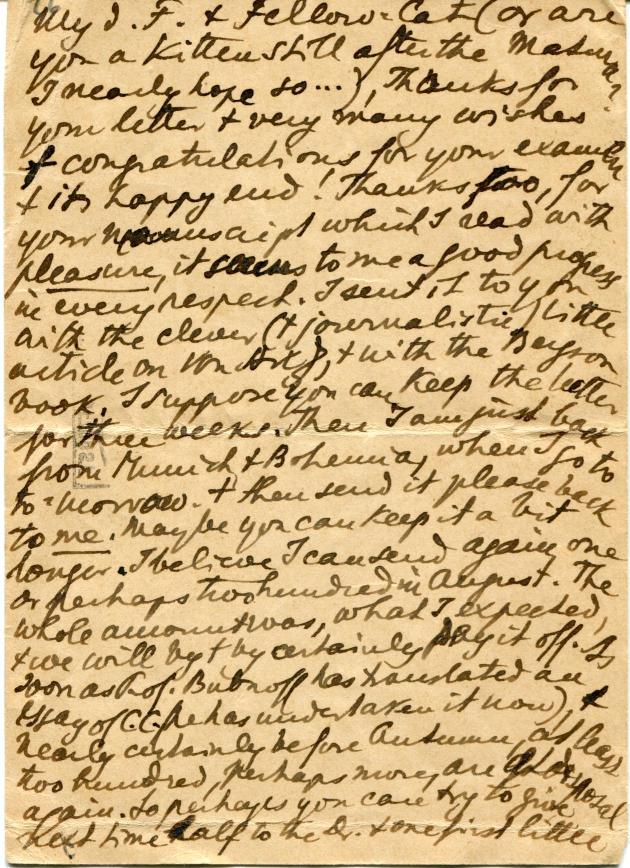 My d. F. & Fellow-Cat (or are
you a Kitten still after the Matura?
I nearly hope so...), Thanks for
your letter & very many wishes
& congratulations for your examen
& its happy end! Thanks too, for
your manuscript which I read with
pleasure, it seems to me a good progress
in every respect. I sent it to you
with the clever (& journalistic) little
article on & with the Bergson
book. I suppose you can keep the latter
for three weeks. Then I am just back
from Munich & Bohemia, when I go to
to-morrow. & then send it please back
to me. Maybe you can keep it a bit
longer. I believe I can send again one
or perhaps two hundred in August. The
whole amount was, what I expected,
& we will by & by certainly pay it off. As
soon as Prof. Bubnoff has translated an
essay of C.C. (he has undertaken it now), &
nearly certainly before Autumn, at least
two hundred, perhaps more, are at disposal
again. So perhaps you can try to give
next time half to the Dr. & one first little